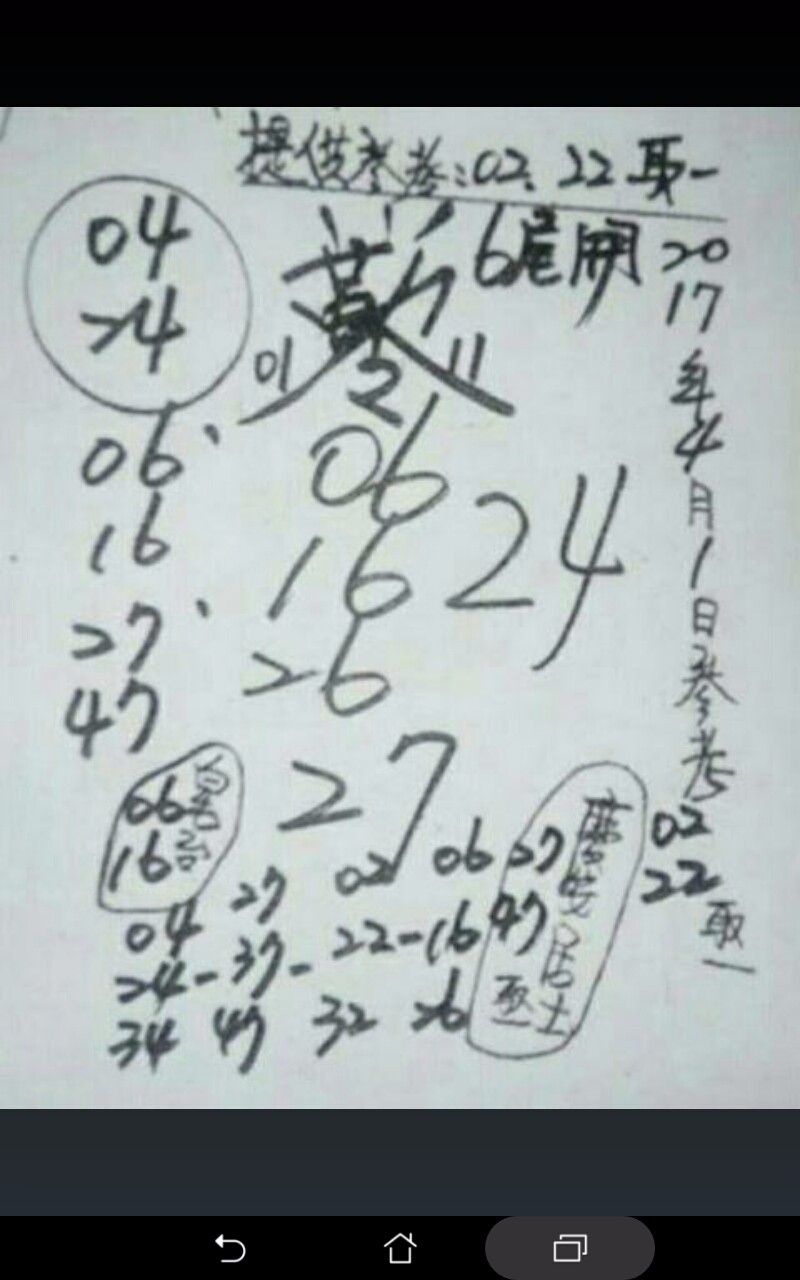 提供参考:02、22取一
6尾開
04
24
01 2 11
06
16
27
47
06
16 24
26
27
06
16
2017年4月1日参考02 22取一
27 02 06 27
04
47
24-37-22-16
34 47 32 26
居士
取一